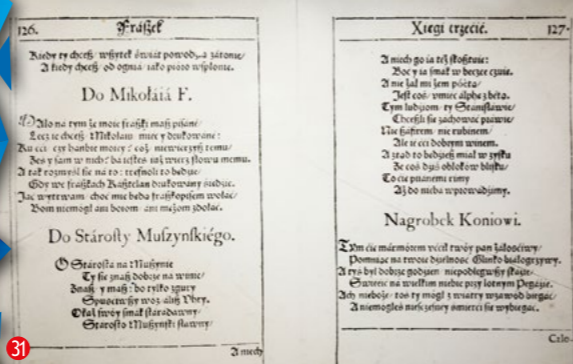 126. Fraszek
Kiedy ty chcesz/ wszytek świat powodzą zátonie/
A kiedy chcesz/ od ognia iako pioro wspłonie.
Do Mikołáiá F.
Máło na tym że moie fraszki masz pisane/
Lecz ie chcesz Mikołaiu mieć y drukowane:
Ku czci czy hańbie moiey? coż/ niewierzysz temu
Żeś y sam w nich? ba iesteś/ iuż wierz słowu memu.
A tak rozmyśl sie na to: trefnoli to będzie/
Gdy we fraszkach Kasztelan drukowany siędzie.
Iać wytrwam/ choć mie będą fraszkopisem wołać/
Bom niemogł ani bogom/ ani mężom zdołać.
Do Stárosty Muszynskiégo.
O Starosta na Muszynie
Ty sie znasz dobrze na winie/
Znasz/ y masz/ bo tylko z gury
Spuściwszy woz/ aliż Węgry.
Okaż swoy smak staradawny/
Starosto Muszyński sławny/
A niech
31
Xiegi trzećié. 127.
A niech go ia też skosztuie:
Boć y ia smak w beczce czuie.
A nie żal mi żem poeta/
Jest coś vmieć alphe z beta.
Tym ludziom ty Stanisławie/
Chceszli sie zachować prawie/
Nie szafirem/ nie rubinem/
Ale ie czci dobrym winem.
A ztąd to będziesz miał w zysku
Że coś dziś obłokow blisko/
To cie pisanemi rymy
Aż do nieba wprowadzimy.
Nagrobek Koniowi.
Tym cie marmorem vczcił twóy pan żałościwy/
Pomniąc na twoie dzielność Glinko białogrzywy.
A tyś był dobrze godzien/ niepodległszy skazie/
Świecić na wielkim niebie przy lotnym Pegazie.
Ach nieboże/ toś ty mogł z wiatry w zawod biegać/
A niemogłeś nieścześney śmierci sie wybiegać.
Człe-